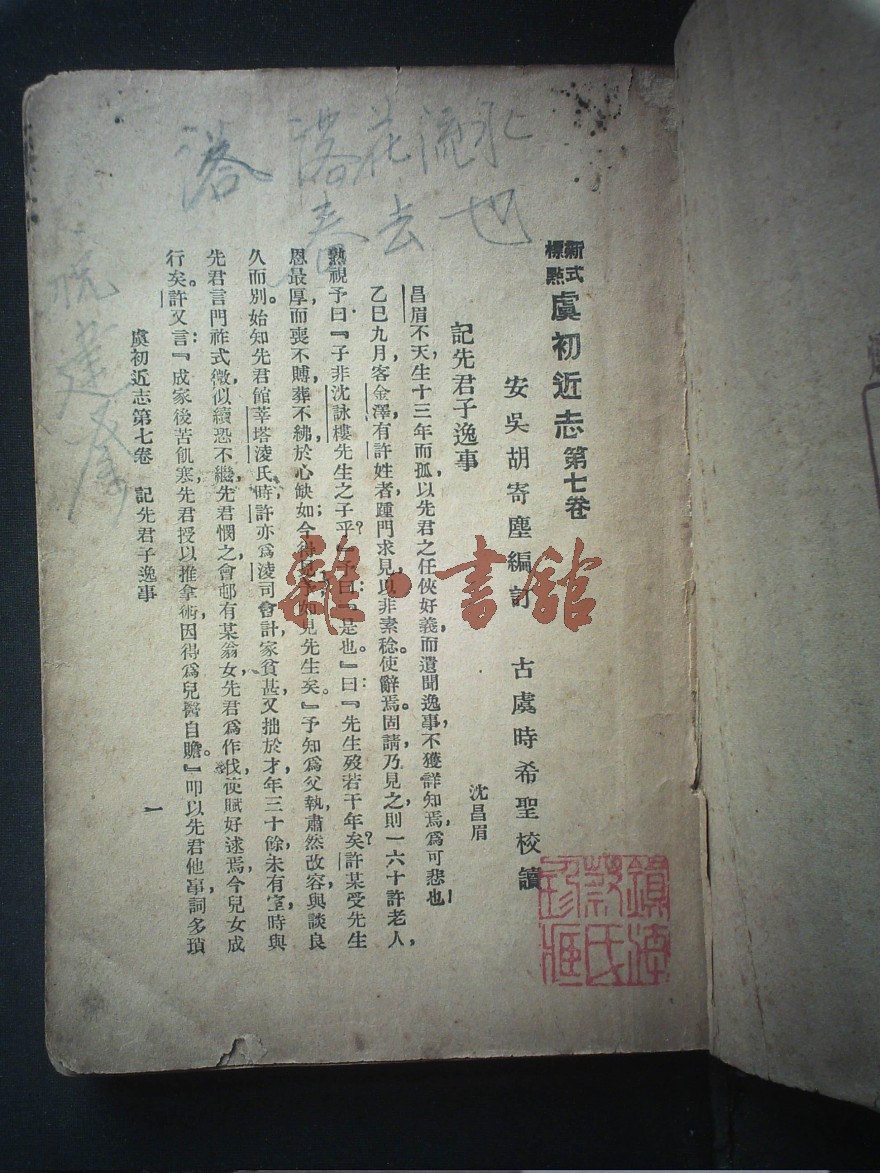 落 落花流水
春去也
新式標點 虞初近志第七卷
安吳胡寄塵編訂 古虞時希聖校讀
記先君子逸事
沈昌眉
昌眉不天，生十三年而孤，以先君之任俠好義，而遺聞逸事，不獲詳知焉，爲可悲也！
乙巳九月，客金澤，有許姓者，踵門求見，以非素稔，使辭焉。固請，乃見之，則一六十許老人，
熟視予曰：『子非沈詠樓先生之子乎？』予曰：『是也。』曰：『先生歿若干年矣？許某受先生
恩最厚，而喪不賻，葬不紼，於心缺如；今得見子，如見先生矣。』予知爲父執，肅然改容，與談良
久而別。始知先君館莘塔淩氏時，許亦爲淩司會計，家貧甚，又拙於才，年三十餘，未有室，時與
先君言門祚式微，似續恐不繼，先君憫之，會邨有某翁女，先君爲作伐，使賦好逑焉，今兒女成
行矣。許又言：『成家後苦飢寒，先君授以推拿術，因得爲兒醫自贍。』叩以先君他事，詞多瑣
虞初近志第七卷 記先君子逸事
一
雜·書館